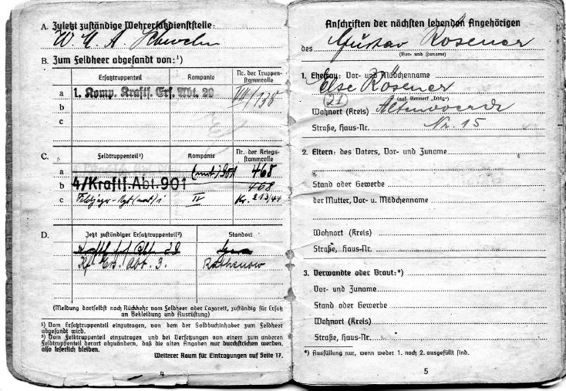 A. Zuletzt zuständige Wehrersatzdienststelle:
W. E. A
B. Zum Feldheer abgesandt von:¹)
Ersatztruppenteil Kompanie Nr. der Truppen-stammrolle
a 1. Komp. Kraftf. Ers. Abt. 20 /138
b
c
C. Feldtruppenteil²) Kompanie Nr. der Kriegs-stammrolle
a 468
b 4/Kraftf.Abt.901 468
c IV Kr. 213/44
D. Jetzt zuständiger Ersatztruppenteil²) Standort
Kf. Ers. Abt. 3. Rathenow
(Meldung dortselbst nach Rückkehr vom Feldheer oder Lazarett, zuständig für Ersatz an Bekleidung und Ausrüstung)
¹) Vom Ersatztruppenteil einzutragen, von dem der Soldbuchinhaber zum Feldheer abgesandt wird.
²) Vom Feldtruppenteil einzutragen und bei Versetzungen von einem zum anderen Feldtruppenteil derart abzuändern, daß die alten Angaben nur durchstrichen werden, also leserlich bleiben.
Weiterer Raum für Eintragungen auf Seite 17.
4
Anschriften der nächsten lebenden Angehörigen
des Gustav Rösener
(Vor- und Zuname)
1. Ehefrau: Vor- und Mädchenname
Else Rösener
(21) (ggf. Vermerk „ledig“)
Wohnort (Kreis)
Straße, Haus-Nr. Nr. 15
2. Eltern: des Vaters, Vor- und Zuname
Stand oder Gewerbe
der Mutter, Vor- u. Mädchenname
Wohnort (Kreis)
Straße, Haus-Nr.
3. Verwandte oder Braut:*)
Vor- und Zuname
Stand oder Gewerbe
Wohnort (Kreis)
Straße, Haus-Nr.
*) Ausfüllung nur, wenn weder 1. noch 2. ausgefüllt sind.
5